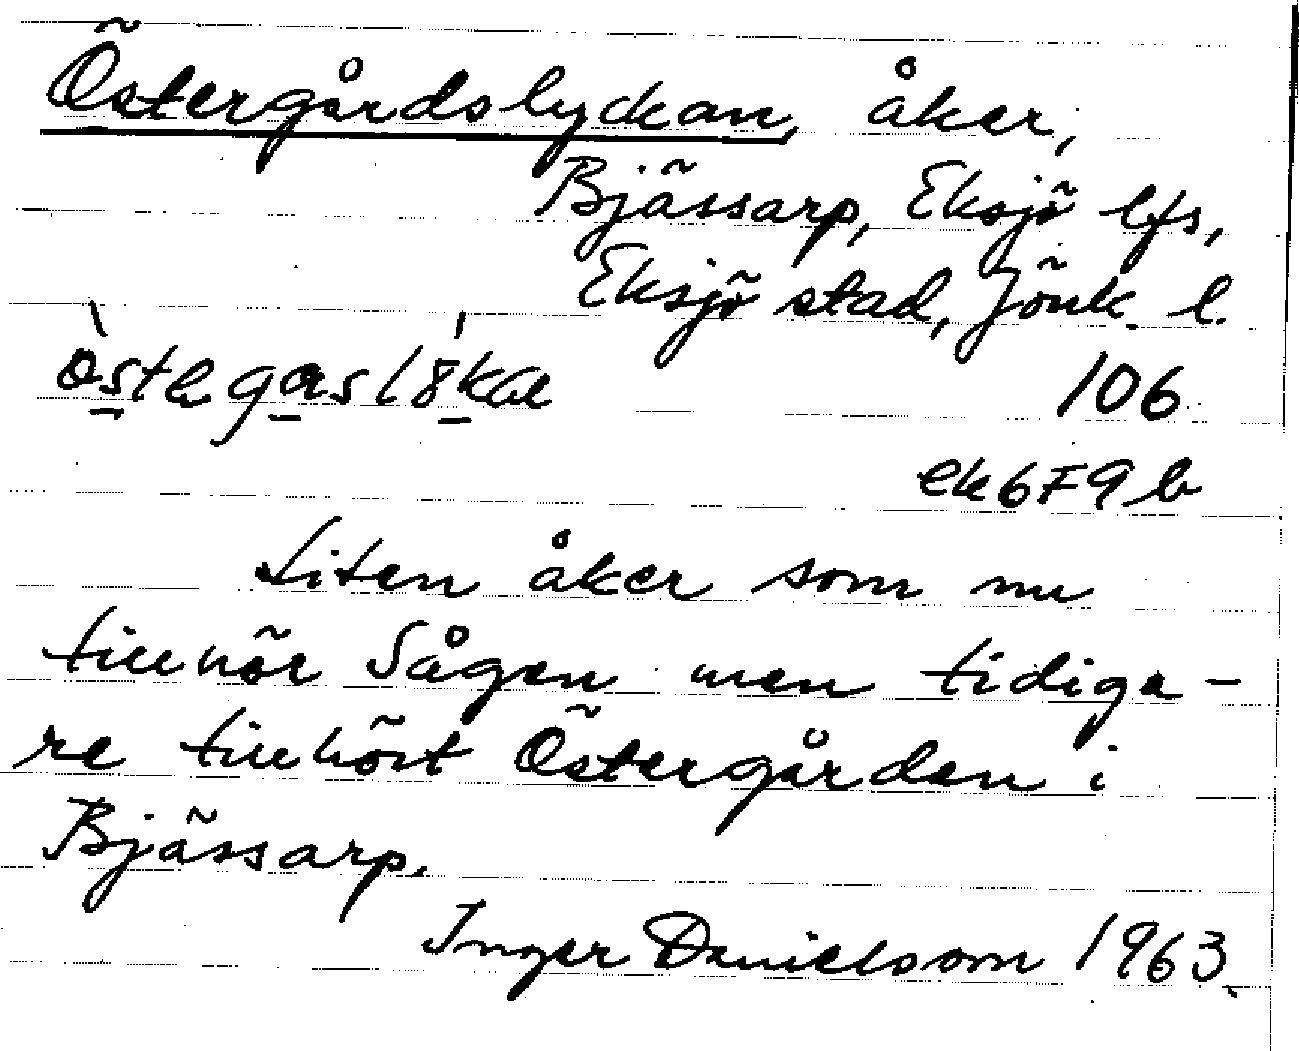 Östergårdslyckan, åker,
Bjässarp, Eksjö lfs,
Eksjö stad, Jönk. l.
106
ek6F9b
Liten åker som nu
tillhör Sågen men tidiga-
re tillhört Östergården i
Bjässarp.
Inger Danielsson 1963.